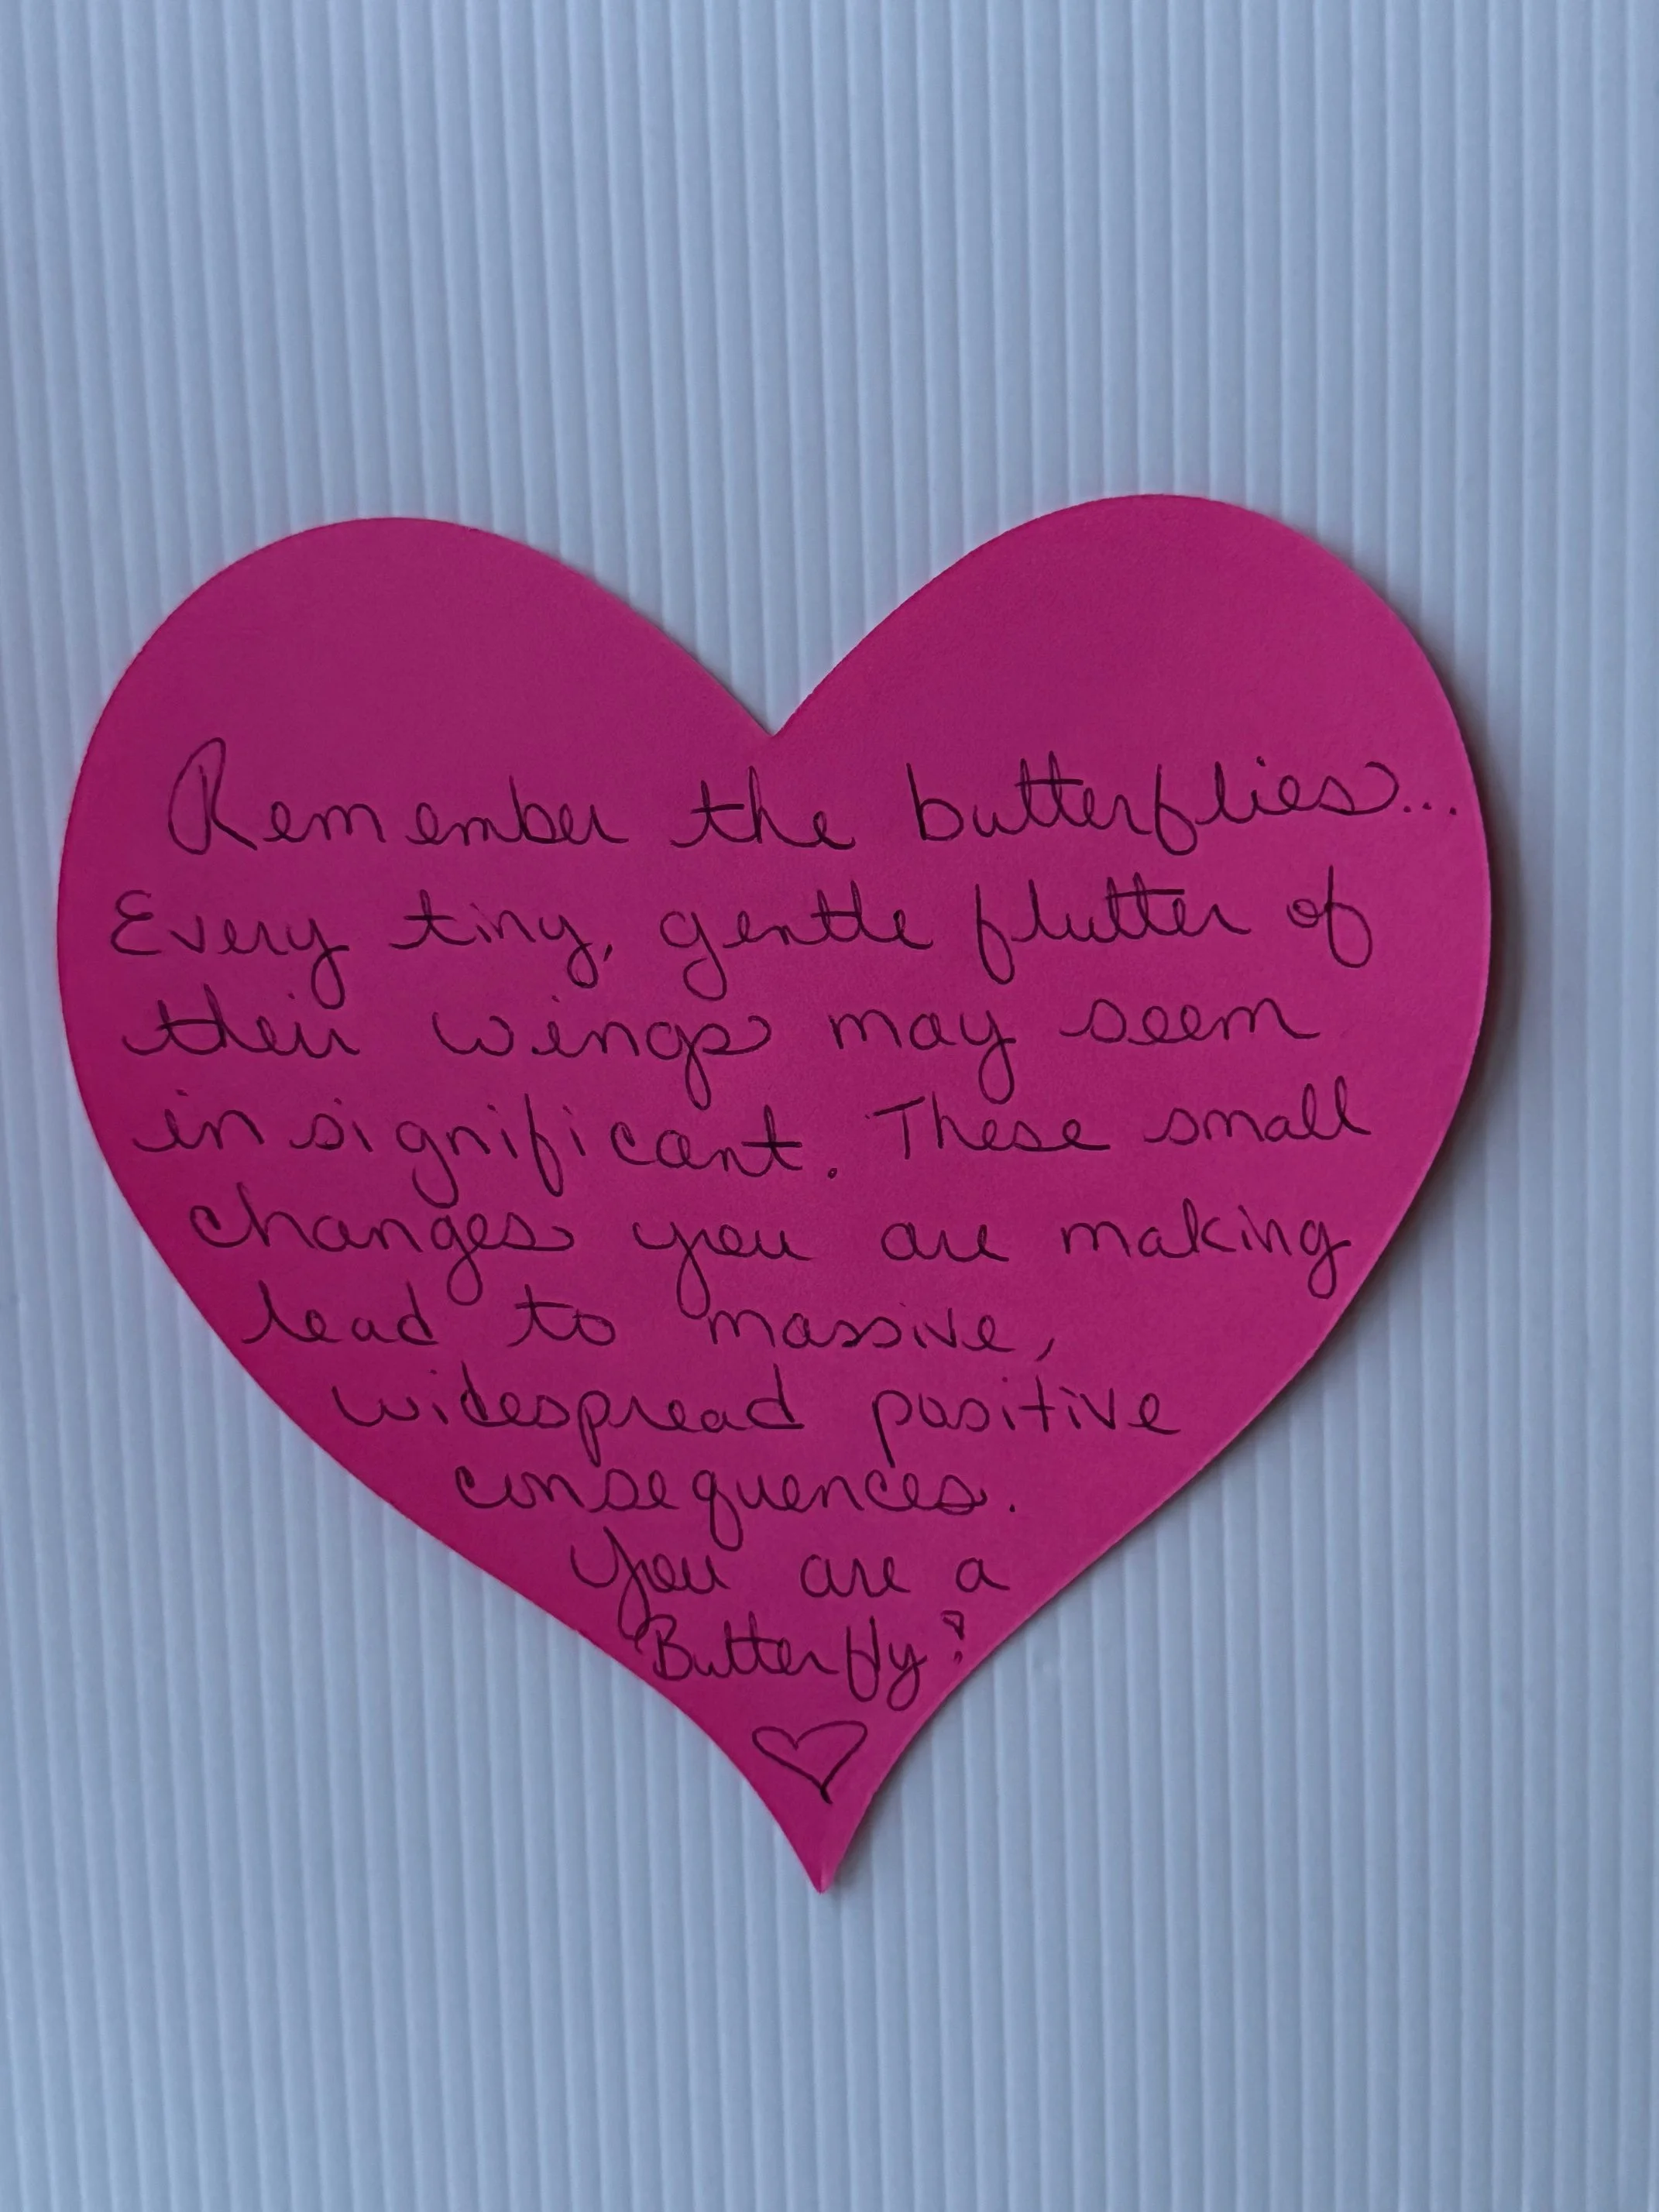 Remember the butterflies...
Every tiny, gentle flutter of
their wings may seem
insignificant. These small
changes you are making
lead to massive,
widespread positive
consequences.
You are a
Butterfly!